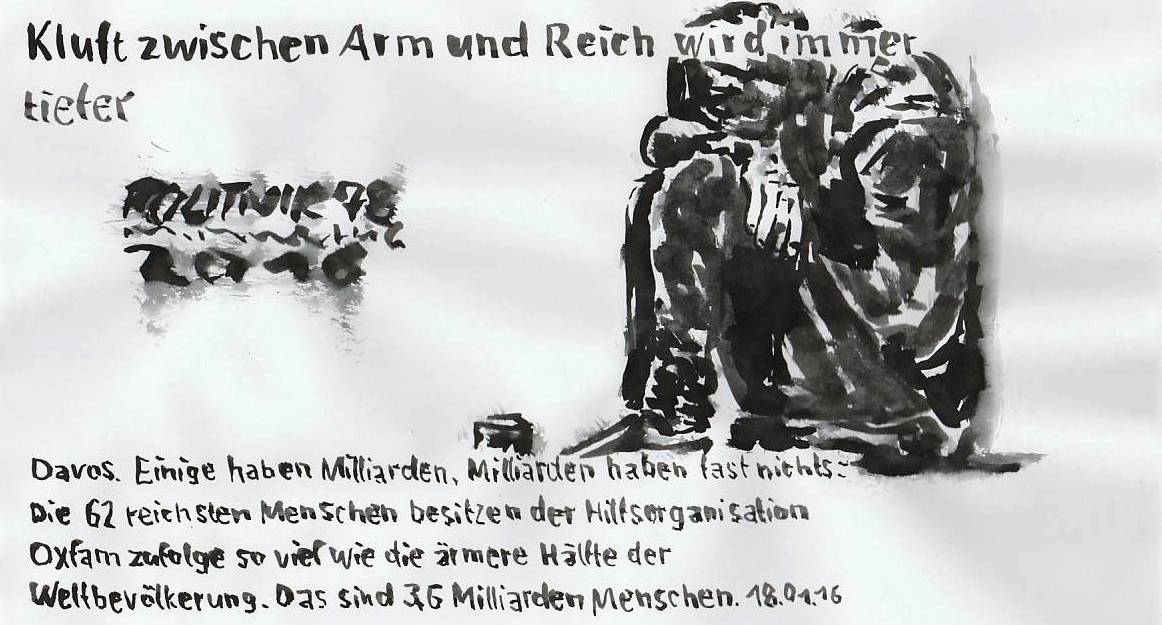 Kluft zwischen Arm und Reich wird immer
tiefer
POLITNIK 78
2016
Davos. Einige haben Milliarden, Milliarden haben fast nichts:
Die 62 reichsten Menschen besitzen der Hilfsorganisation
Oxfam zufolge so viel wie die ärmere Hälfte der
Weltbevölkerung. Das sind 3,6 Milliarden Menschen. 18.01.16